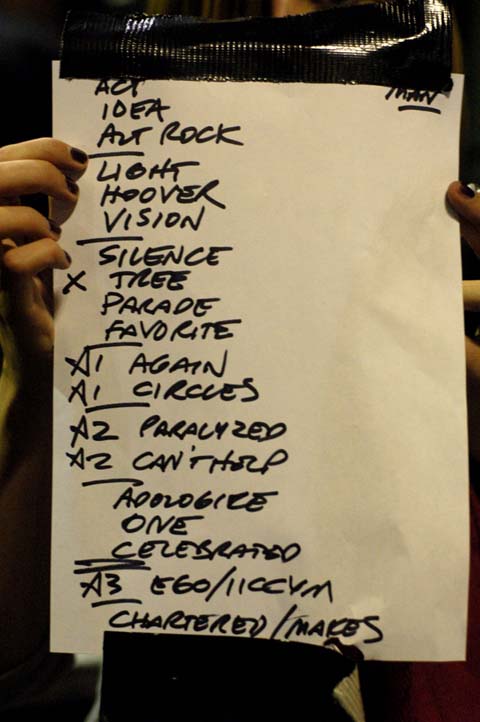 ACT
MAN
IDEA
ALT ROCK
LIGHT
HOOVER
VISION
SILENCE
X TREE
PARADE
FAVORITE
A1 AGAIN
A1 CIRCLES
A2 PARALYZED
A2 CAN'T HELP
APOLOGIZE
ONE
CELEBRATED
A3 EGO/IICCYM
CHARTERED/MAKES